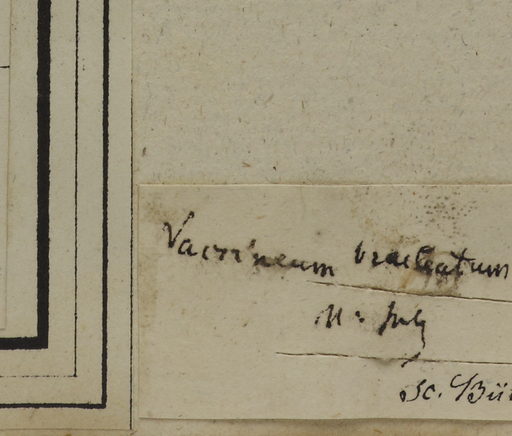 Vaccineum bracteatum
sc. Bü